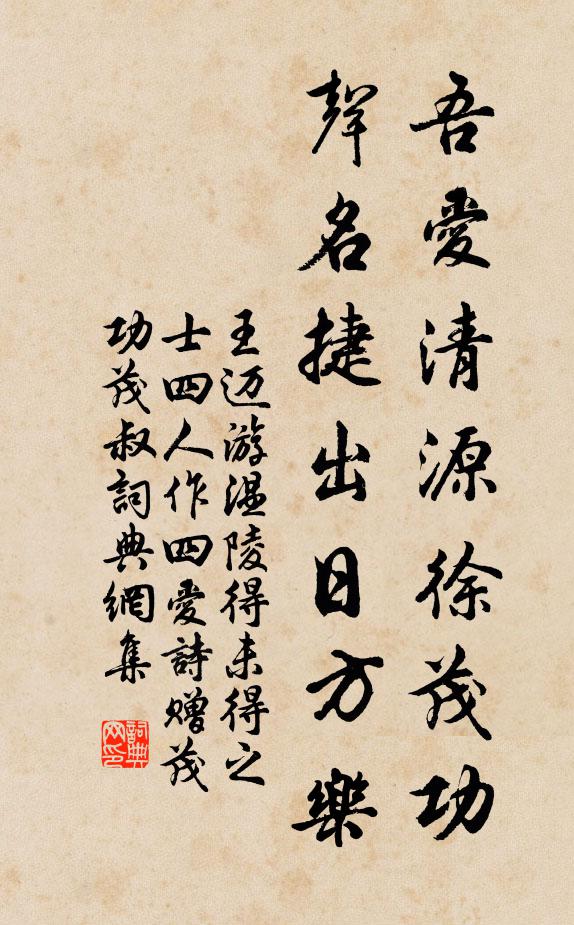 吾愛清源徐茂功
聲名捷出日方樂
王迈游温陵得未得之
士四人作四愛詩赠茂
功茂叔詞典網集
詞典
网印